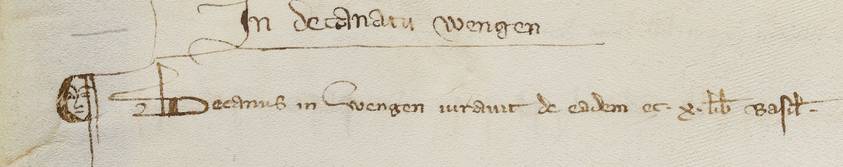 In decanatu wengen
Decanus in wengen iuravit de eadem ec. x. lib basil.